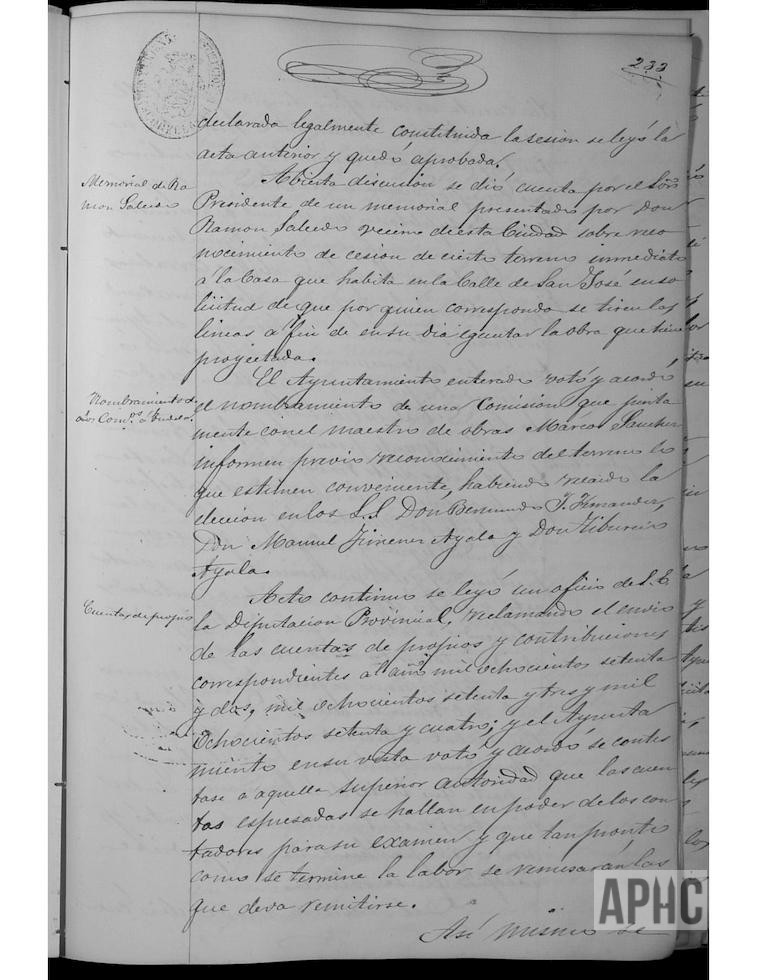 233
declarada legalmente constituida la sesion se leyó la
acta anterior y quedó aprobada.
Memorial de Ra
mon Salcedo
Abierta discusion se dió cuenta por el Sõr
Presidente de un memorial presentado por Don
Ramon Salcedo vecino de esta Ciudad sobre reco
nocimiento de cesion de cierto terreno inmediato
á la Casa que habita en la Calle de San José en so
licitud de que por quien corresponda se tiren las
lineas a fin de en su dia ejecutar la obra que tiene
proyectada.
Nombramiento de
El Ayuntamiento enterado votó y acordó
el nombramiento de una Comision que junta
mente con el maestro de obras Marcos Sanchez
informen previo reconocimiento del terreno lo
que estimen conveniente, habiendo recaido la
eleccion en los S.S. Don Bermundo F. Fernandez,
Don Manuel Jimenez Ayala y Don Tiburcio
Ayala.
Cuentas de propios
Acto continuo se leyó un oficio de S. E.
la Diputacion Provincial, reclamando el envio
de las cuentas de propios y contribuciones
correspondientes al año mil ochocientos setenta
y dos, mil ochocientos setenta y tres y mil
ochocientos setenta y cuatro; y el Ayunta
miento en su vista votó y acordó se contes
tase a aquella superior autoridad que las cuen
tas espresadas se hallan en poder de los con
tadores para su examen y que tan pronto
como se termine la labor se remesarán las
que deva remitirse.
Así mismo se
APHC